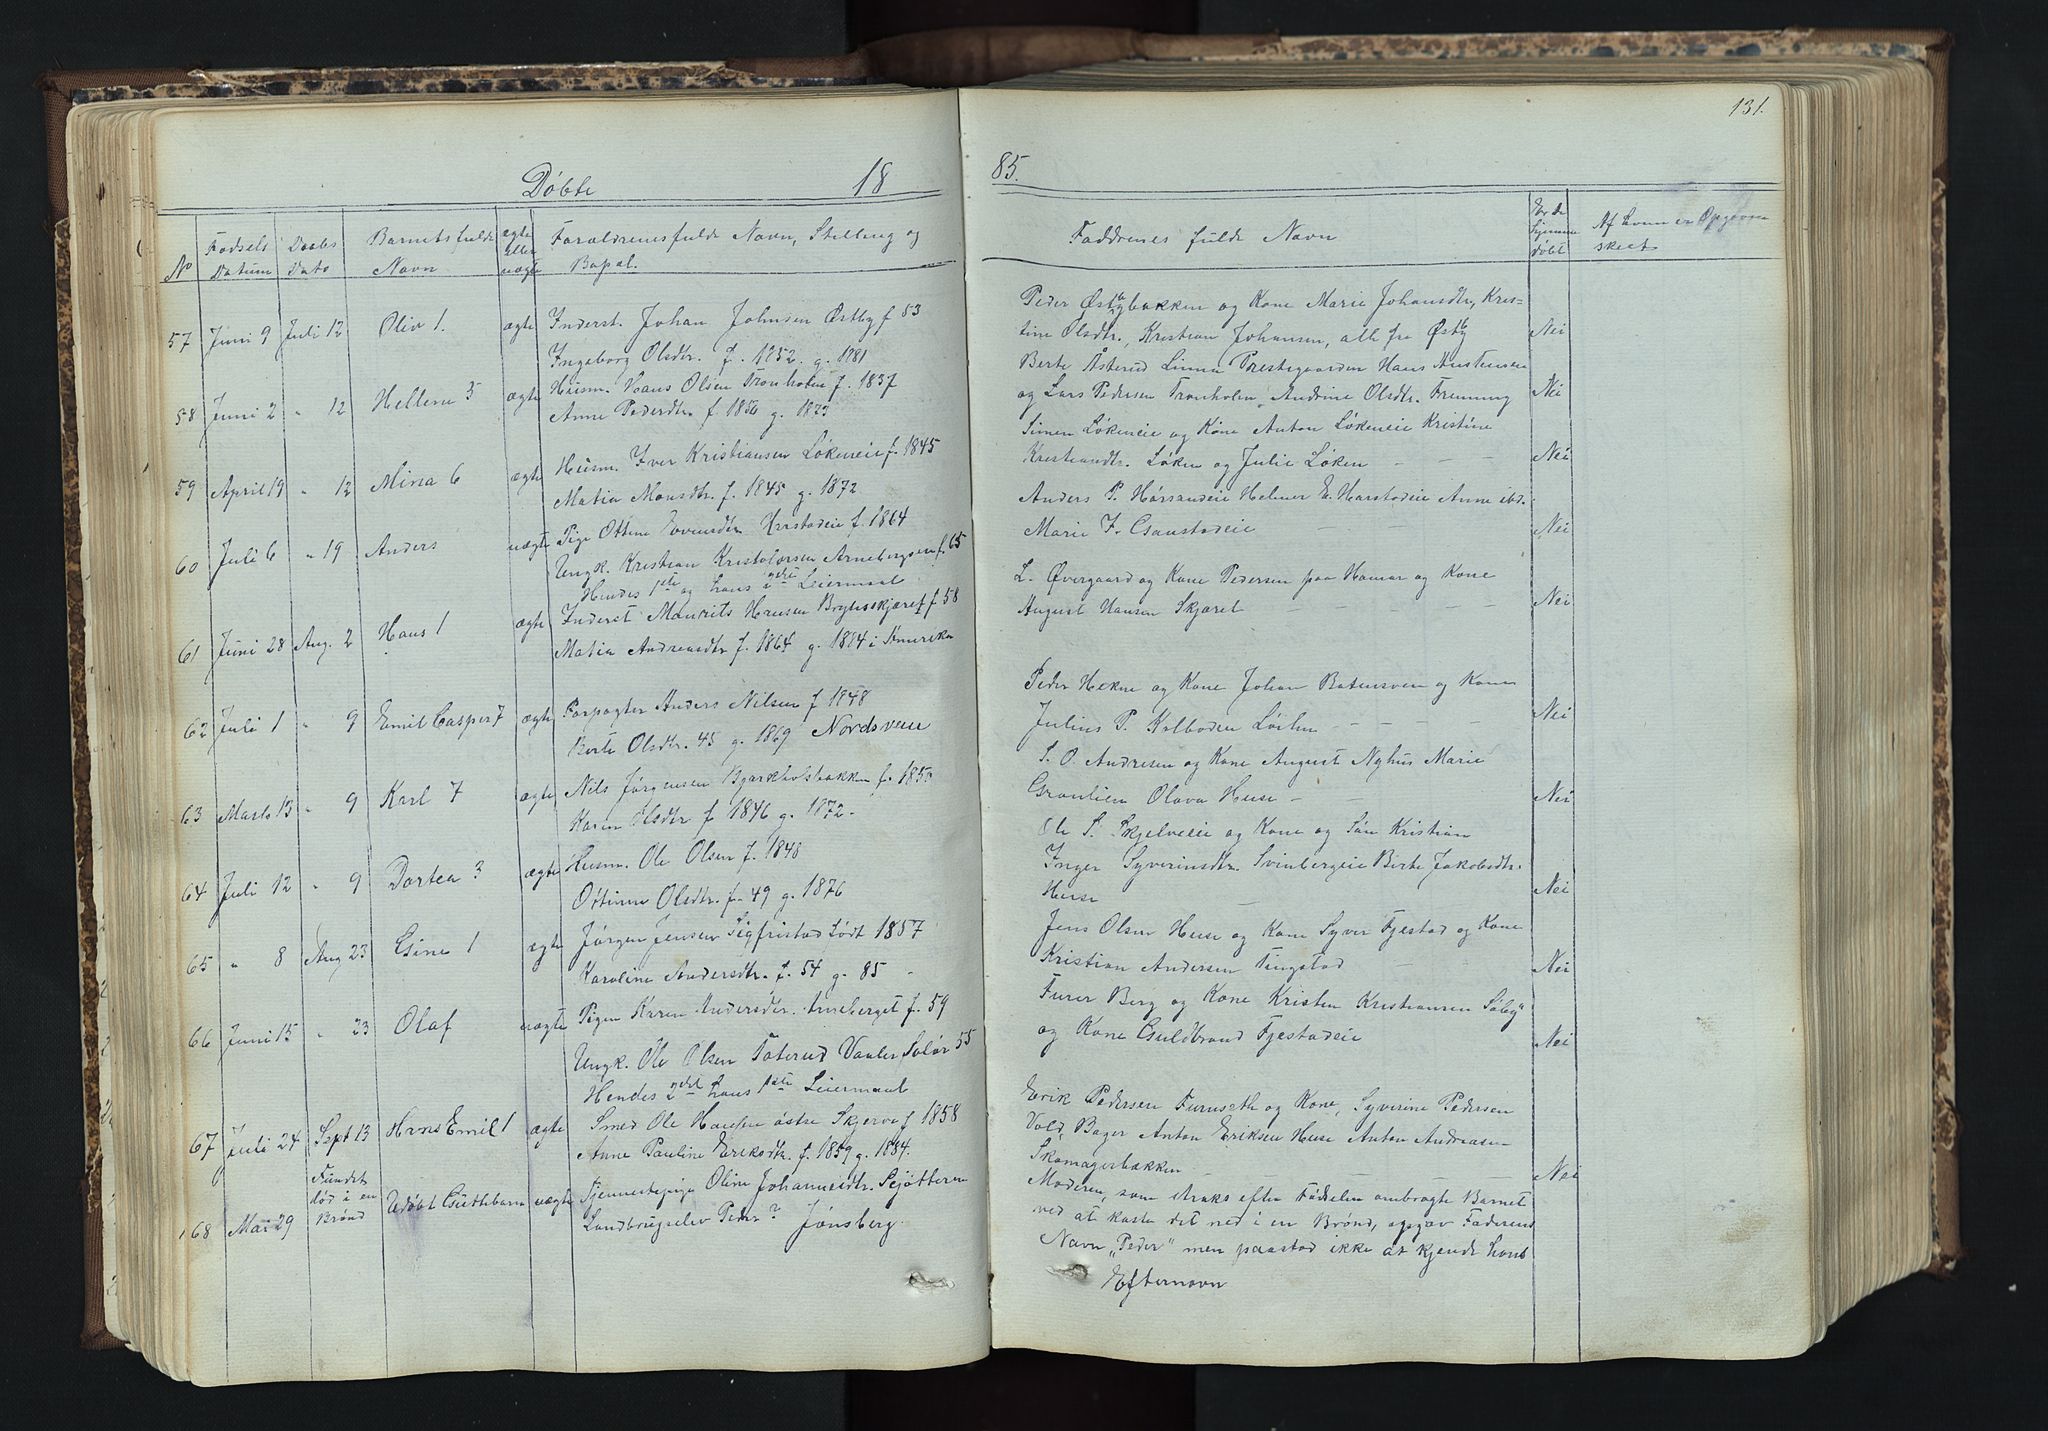 131.
Døbte 18 85.
No Fødsels Datum Daabs Dato Barnets fulde Navn ægte eller uægte Forældrenes fulde Navn, Stilling og Bopæl. Faddrenes fulde Navn Er de hjemme døbt Af hvem er Opgaven skeet
57 Juni 9 Juli 12 Oliv 1. ægte Inderst. Johan Johnsen Østby f 53
Ingeborg Olsdtr. f. 1852. g. 1881
Peder Østbybakken og Kone Marie Johansdtr, Kris-
tine Olsdtr., Kristian Johansen, alle fra Østby Nei
58 Juni 2 " 12 Hellene 3 ægte Husm. Hans Olsen Tronholen f. 1837
Anne Pedersdtr f. 1850 g. 1873
Berte Åsterud Linna Prestegaarden Hans Austensen
og Lars Pedersen Tronholm Andrine Olsdtr. Fremming Nei
59 April 19 " 12 Mina 6 ægte Husm. Iver Kristiansen Løkeneie f. 1845
Matia Monsdtr. f. 1845 g. 1872
Simen Løkeneie og Kone Anton Løkeneie Kristine
Kristiandtr. Løken og Julie Løken Nei
60 Juli 6 " 19 Anders uægte Pige Ottine Evensdtr Harstadeie f. 1864
Ungk. Kristian Kristofersen Arnebergseie f. 65
Hendes 1ste og hans 2det Leiermaal
Anders P. Harsandeie Helmer E. Harstadeie Anne ibd.
Marie F. Gaustadeie Nei
61 Juni 28 Aug. 2 Hans 1 ægte Inderst Maurits Hansen Bryhsskjæret f 58
Matia Andreasdtr f. 1864 g. 1884 i Amerika
L. Øvergaard og Kone Pedersen paa Hamar og Kone
August Hansen Skjæret Nei
62 Juli 1 " 9 Emil Casper 7 ægte Forpagter Anders Nilsen f 1848
Berte Olsdtr. 45 g. 1869 Nordsveen
Peder Hekne og Kone Johan Batensveen og Kone
Julius P. Kolboden Løiten Nei
63 Marts 13 " 9 Karl 7 ægte Nils Jørgensen Bjørkholsbakken f. 1850
Karen Olsdtr f 1846 g. 1872.
S. O. Andresen og Kone August Nyhus Marie
Granlien Olava Huse Nei
64 Juli 12 " 9 Dortea 3 ægte Husm. Ole Olsen f. 1848
Ottinne Olsdtr. f. 49 g. 1876
Ole S. Skjelveeie og Kone og Søn Kristian
Inger Syverinsdtr. Svinbergeie Birte Jakobsdtr.
Huse Nei
65 " 8 Aug 23 Gina 1 ægte Jørgen Jensen Sigfristad født 1857
Karoline Andersdtr. f. 54 g. 85
Jens Olsen Huse og Kone Syver Fjestad og Kone
Kristian Andersen Tingstad Nei
66 Juni 15 " 23 Olaf uægte Pigen Karen Andersdtr. Arneberget f. 59
Ungk. Ole Olsen Toterud Vaaler Solør 55
Hendes 2det hans 1ste Leiermaal
Furer Berg og Kone Kristen Kristiansen Søby
og Kone Guldbrand Fjestadeie Nei
67 Juli 24 Sept 13 Hans Emil 1 ægte Smed Ole Hansen østre Skjerve f 1858
Anne Pauline Eriksdtr. f. 1859 g. 1884.
Erik Pedersen Furuseth og Kone, Syverine Pedersen
Vold, Bager Anton Eriksen Huse Anton Andreasen
Skomagerbakken Nei
68 Mai 29 Fundet død i en Brønd Udøbt Guttebarn uægte Tjenestepige Oline Johannesdtr. Sejötteren
Landbrugselev Peder? Jønsberg.
Moderen, som straks efter Fødselen ombragte Barnet
ved at kaste det ned i en Brønd, opgav Faderens
Navn „Peder" men paastod ikke at kjende hans
Efternavn